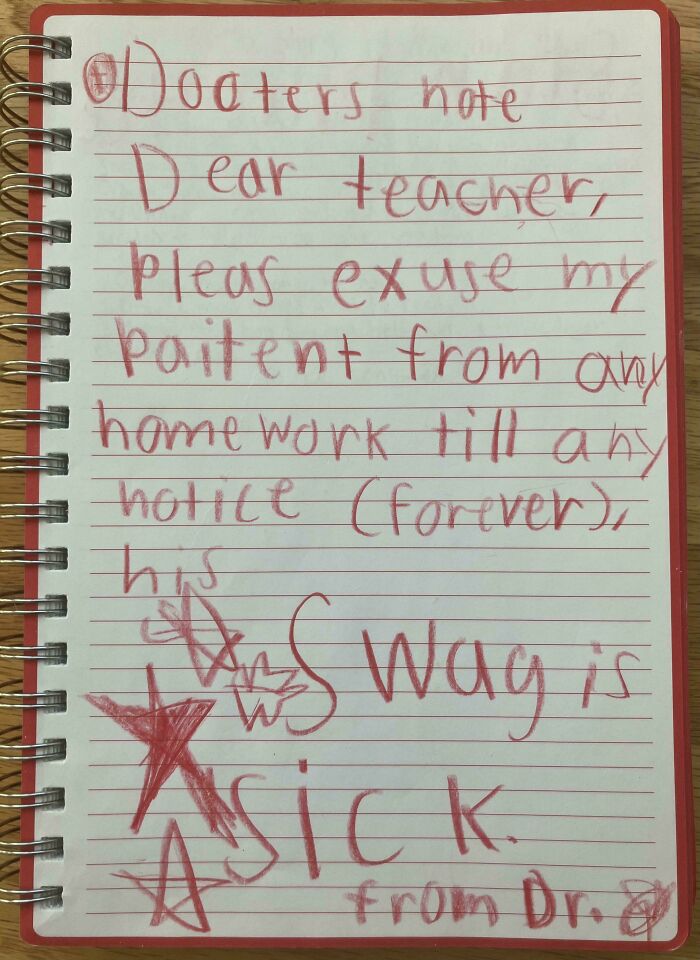 Docters note
Dear teacher,
pleas exuse my
paitent from any
homework till any
notice (forever),
his
Swag is
sick.
from Dr.